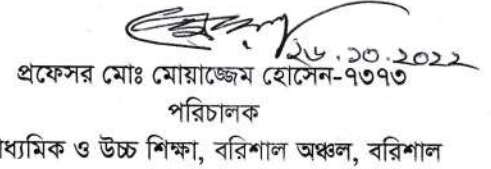 ২৬.১০.২০২২
প্রফেসর মোঃ মোয়াজ্জেম হোসেন-৭৩৭৩
পরিচালক
ধ্যমিক ও উচ্চ শিক্ষা, বরিশাল অঞ্চল, বরিশাল